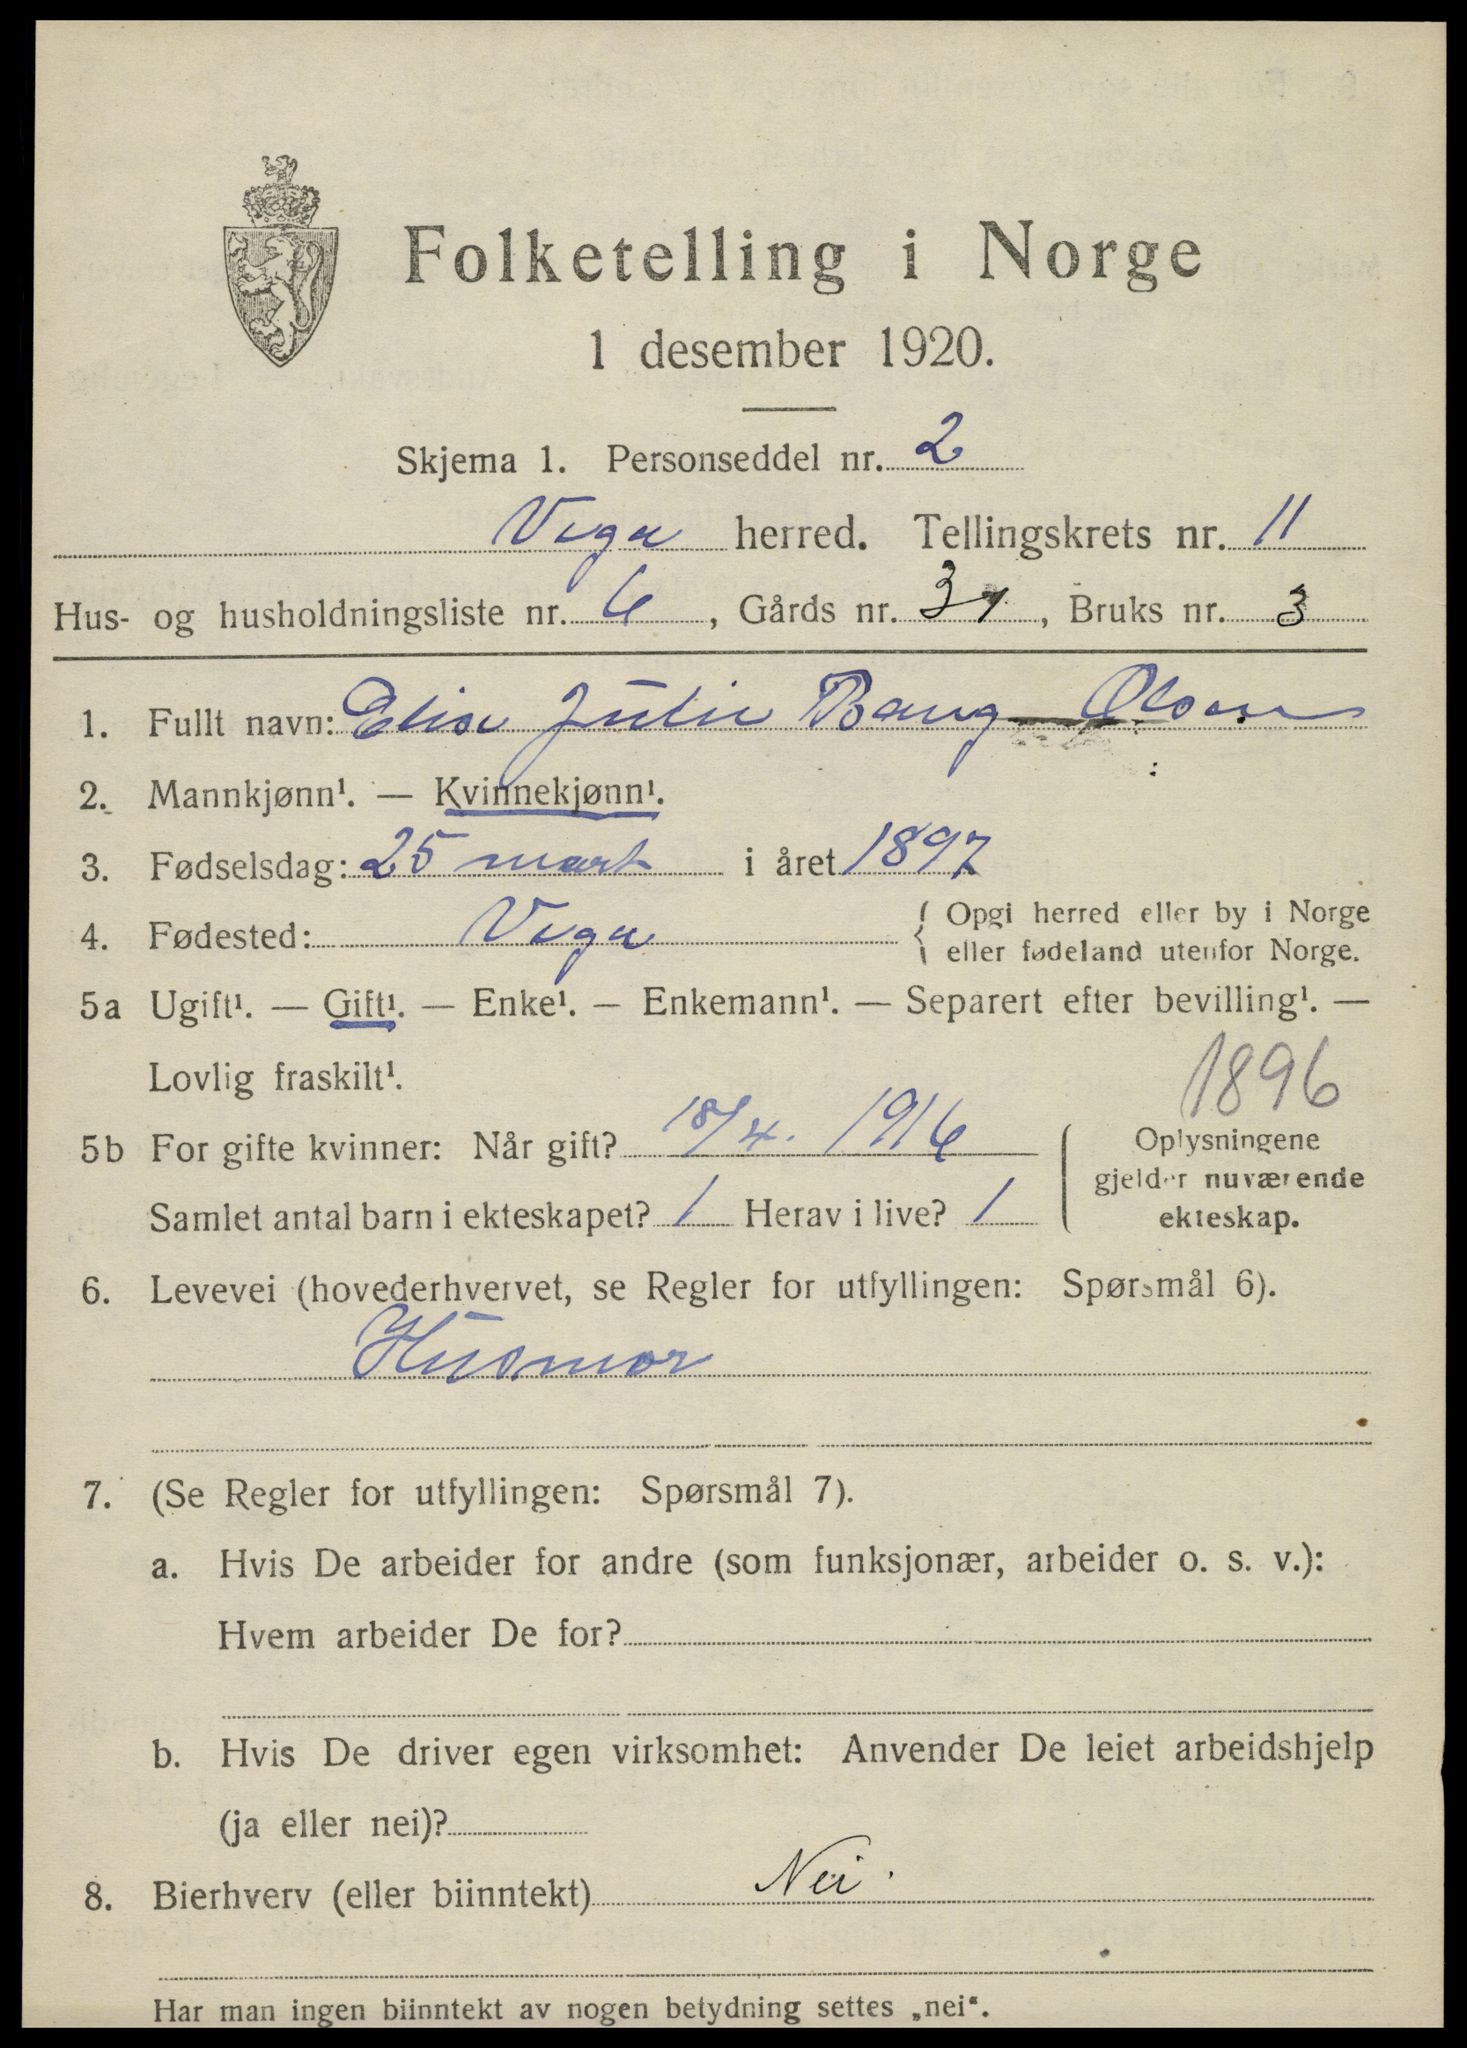 Folketelling i Norge
1 desember 1920.
Skjema 1. Personseddel nr. 2
Vega herred. Tellingskrets nr. 11
Hus- og husholdningsliste nr. 6, Gårds nr. 31, Bruks nr. 3
1. Fullt navn: Elise Julie Bang Olsen
2. Mannkjønn¹. — Kvinnekjønn¹.
3. Fødselsdag: 25 mart i året 1897
4. Fødested: Vega { Opgi herred eller by i Norge
eller fødeland utenfor Norge.
5a Ugift¹. — Gift¹. — Enke¹. — Enkemann¹. — Separert efter bevilling¹. —
Lovlig fraskilt¹.
1896
5b For gifte kvinner: Når gift? 18/4. 1916
Samlet antal barn i ekteskapet? 1 Herav i live? 1
Oplysningene
gjelder nuværende
ekteskap.
6. Levevei (hovederhvervet, se Regler for utfyllingen: Spørsmål 6).
Husmor
7. (Se Regler for utfyllingen: Spørsmål 7).
a. Hvis De arbeider for andre (som funksjonær, arbeider o. s. v.):
Hvem arbeider De for?
b. Hvis De driver egen virksomhet: Anvender De leiet arbeidshjelp
(ja eller nei)?
8. Bierhverv (eller biinntekt) Nei.
Har man ingen biinntekt av nogen betydning settes „nei“.